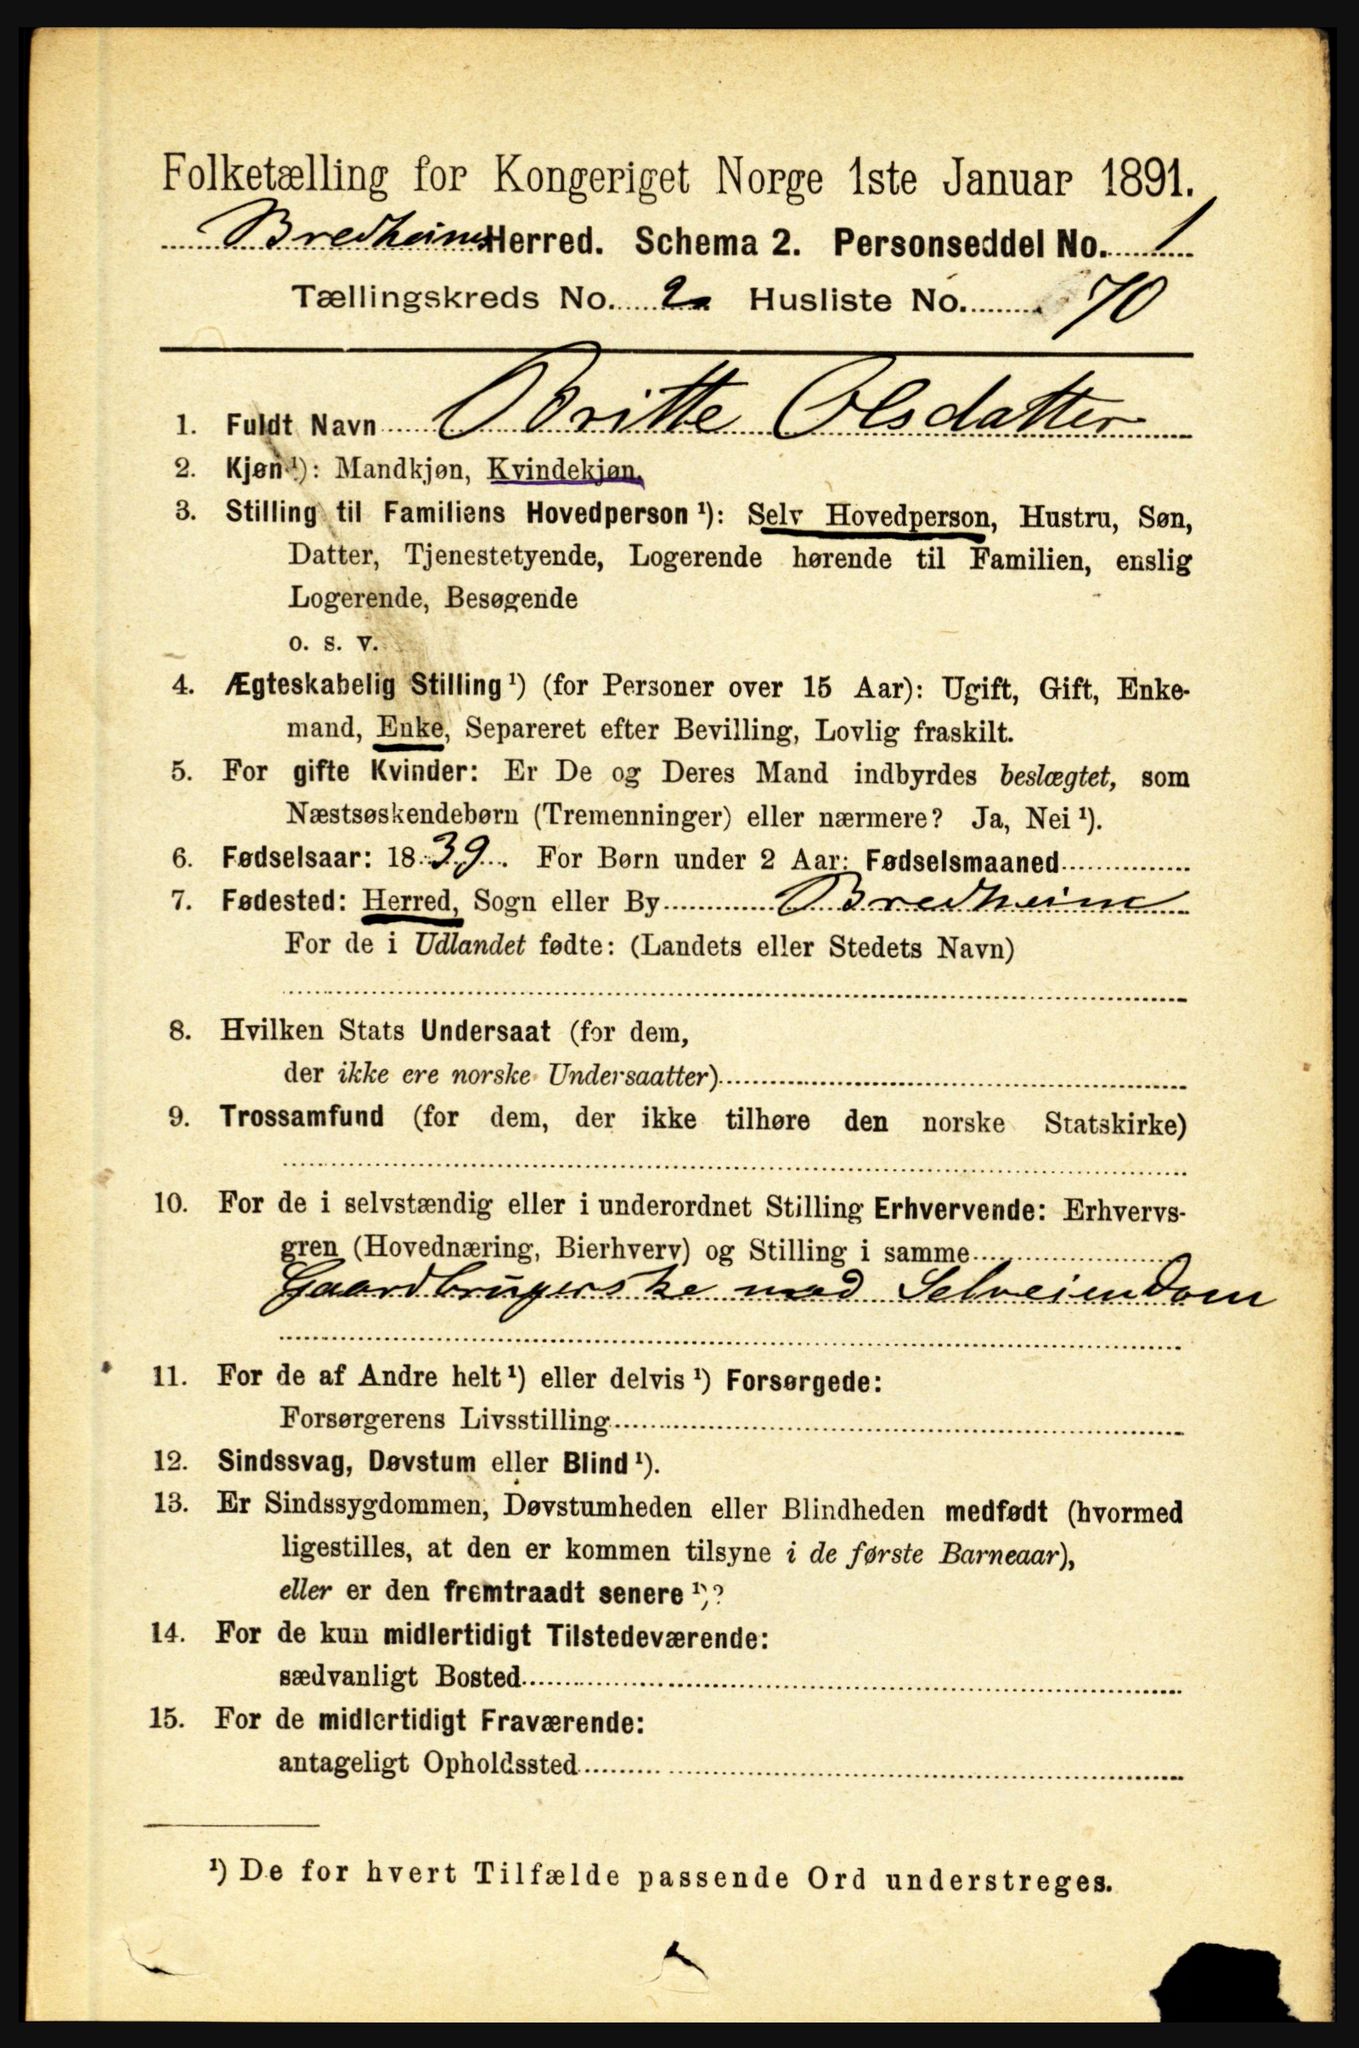 Folketælling for Kongeriget Norge 1ste Januar 1891.
Bredheims Herred. Schema 2. Personseddel No. 1
Tællingskreds No. 2 Husliste No. 70
1. Fuldt Navn Britte Olsdatter
2. Kjøn¹): Mandkjøn, Kvindekjøn.
3. Stilling til Familiens Hovedperson¹): Selv Hovedperson, Hustru, Søn,
Datter, Tjenestetyende, Logerende hørende til Familien, enslig
Logerende, Besøgende
o. s. v.
4. Ægteskabelig Stilling¹) (for Personer over 15 Aar): Ugift, Gift, Enke-
mand, Enke, Separeret efter Bevilling, Lovlig fraskilt.
5. For gifte Kvinder: Er De og Deres Mand indbyrdes beslægtet, som
Næstsøskendebørn (Tremenninger) eller nærmere? Ja, Nei¹).
6. Fødselsaar: 1839. For Børn under 2 Aar: Fødselsmaaned
7. Fødested: Herred, Sogn eller By Bredheim
For de i Udlandet fødte: (Landets eller Stedets Navn)
8. Hvilken Stats Undersaat (for dem,
der ikke ere norske Undersaatter)
9. Trossamfund (for dem, der ikke tilhøre den norske Statskirke)
10. For de i selvstændig eller i underordnet Stilling Erhvervende: Erhvervs-
gren (Hovednæring, Bierhverv) og Stilling i samme
Gaardbrugerske med Selveiendom
11. For de af Andre helt¹) eller delvis¹) Forsørgede:
Forsørgerens Livsstilling
12. Sindssvag, Døvstum eller Blind¹).
13. Er Sindssygdommen, Døvstumheden eller Blindheden medfødt (hvormed
ligestilles, at den er kommen tilsyne i de første Barneaar),
eller er den fremtraadt senere¹)?
14. For de kun midlertidigt Tilstedeværende:
sædvanligt Bosted
15. For de midlertidigt Fraværende:
antageligt Opholdssted
¹) De for hvert Tilfælde passende Ord understreges.